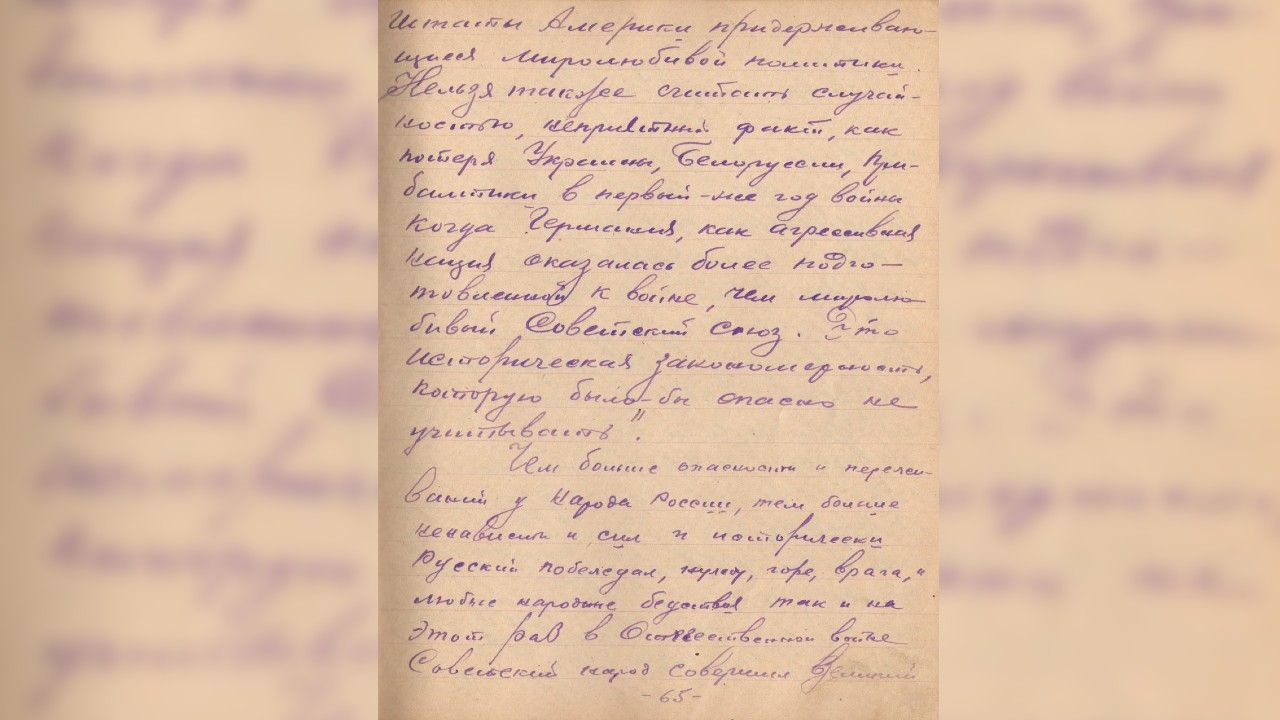 Штаты Америки придерживаю-
щиеся миролюбивой политики.
Нельзя также считать случай-
ностью, неприятный факт, как
потеря Украины, Белоруссии, При-
балтики в первый-же год войны
когда Германия, как агрессивная
нация оказалась более подго-
товленной к войне, чем миролю-
бивый Советский Союз. Это
историческая закономерность,
которую было-бы опасно не
учитывать".
Чем больше опасности и пережи-
ваний у народа России, тем больше
ненависти и сил и исторически
Русский побеждал, нужду, горе, врага, и
любые народные бедствия так и на
этот раз в Отечественной войне
Советский народ совершил Великий
-65-